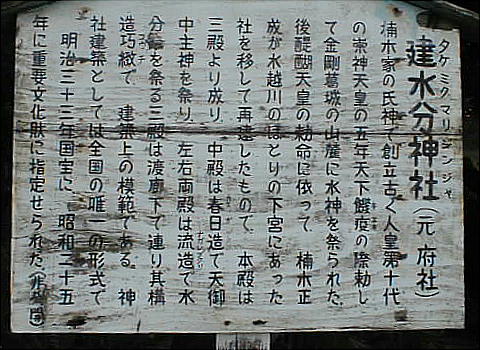 タケミクマリジンジャ
建水分神社(元府社)
楠木家の氏神で創立古く人皇第十代
の崇神天皇の五年天下饑疫の際勅し
て金剛葛城の山麓に水神を祭られた
後醍醐天皇の勅命に依って 楠木正
成が水越川のほとりの下宮にあった
社を移して再建したもので、本殿は
三殿より成り 中殿は春日造で天御
中主神を祭り、左右両殿は流造で水
分神を祭る三殿は渡廊下で連り其構
造巧緻で 建築上の模範である 神
社建築としては全国の唯一の形式で
明治三十三年国宝に 昭和二十五
年に重要文化財に指定せられた(非公開)